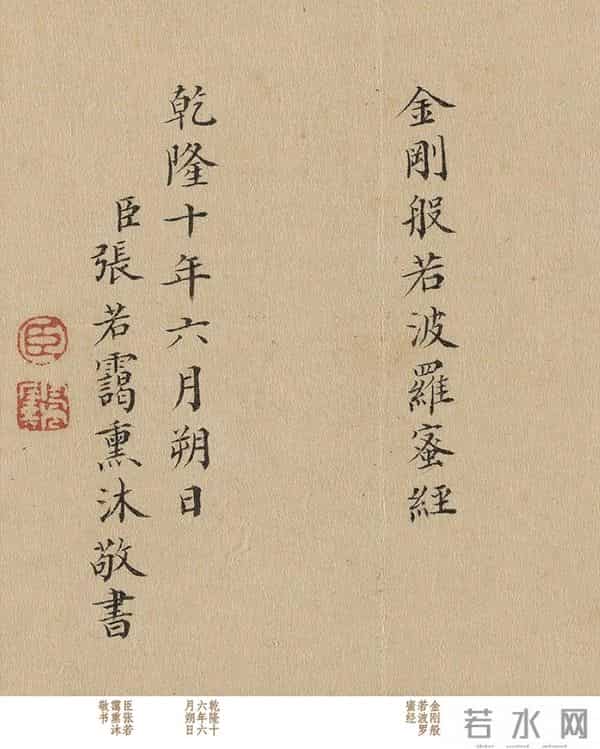 金剛般若波羅蜜經
乾隆十年六月朔日
臣張若靄熏沐敬書
臣
金刚般
若波罗
蜜经
乾隆十
六年六
月朔日
臣张若
霭熏沐
敬书
若水网